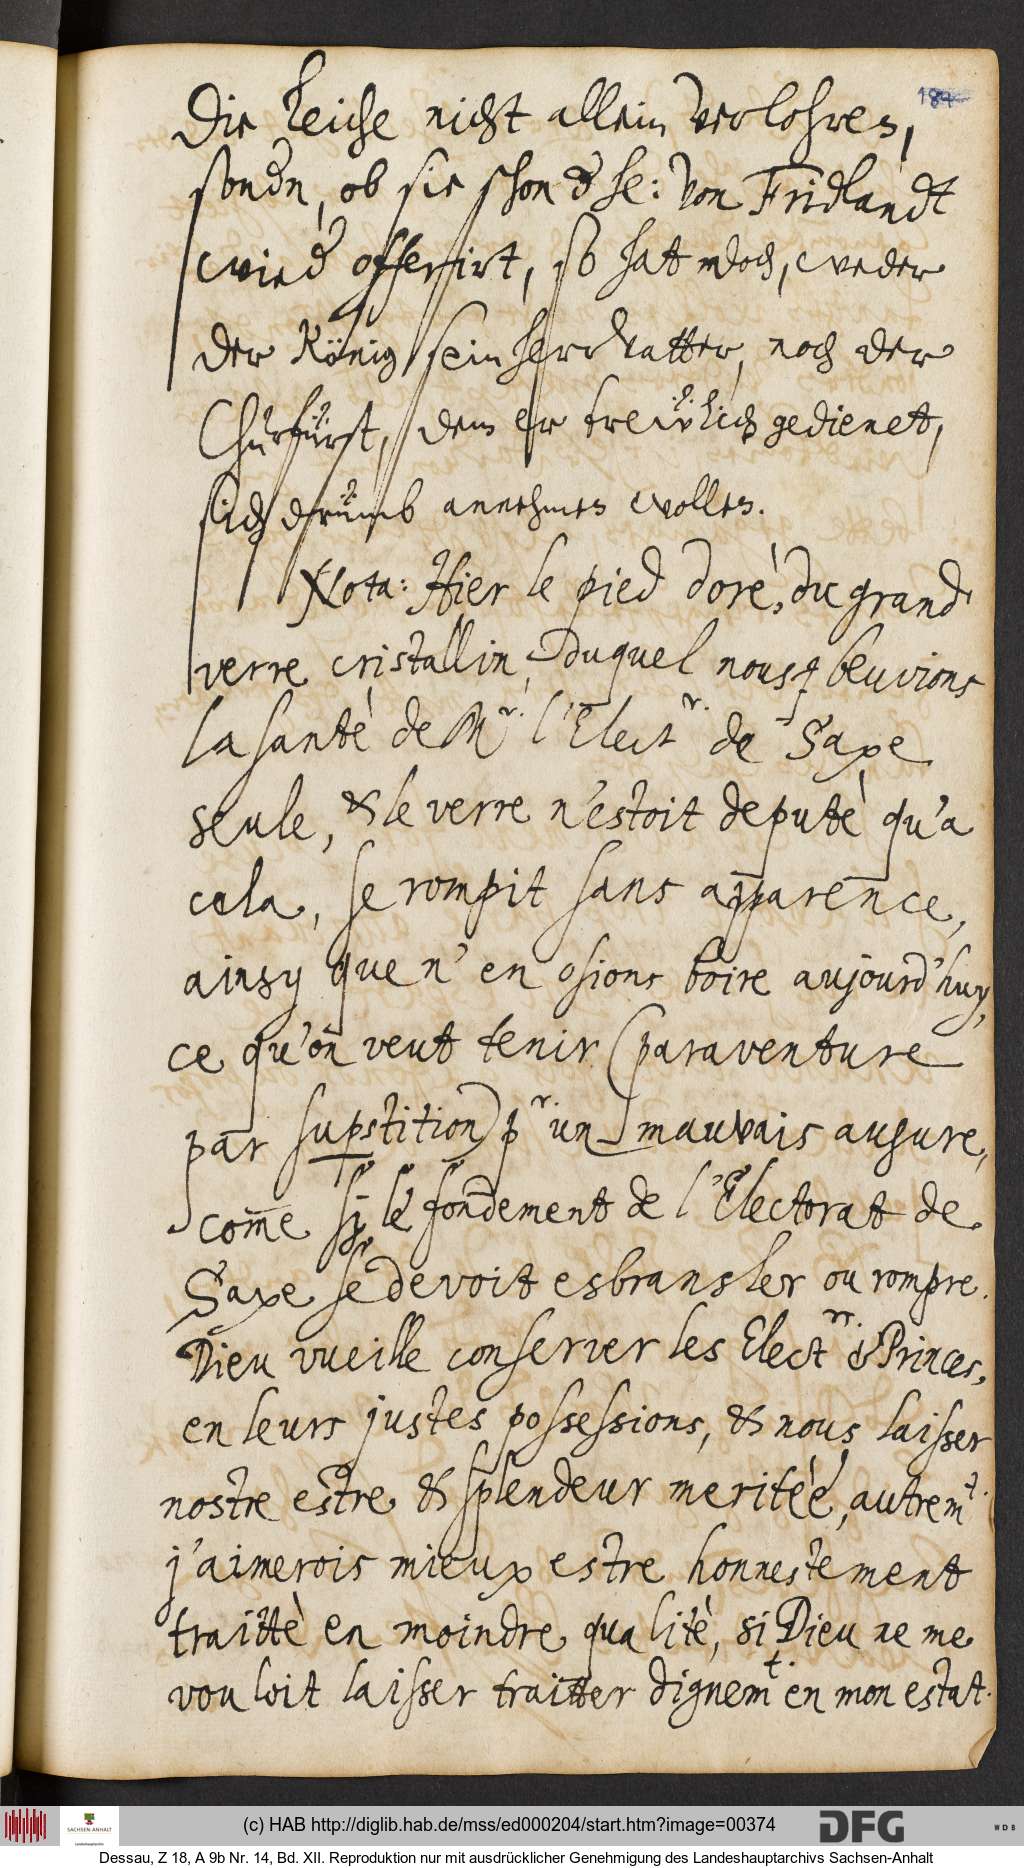 184
die leiche nicht allein verlohren,
sondn, ob sie schon d he: von Fridlandt
wied offerirt, so hat doch, weder
der König sein herr vatter, noch der
Churfürst, dem er treẅlich gedienett,
sich drümb annehmen wollen.
Nota: Hier le pied doré, du grand
verre cristallin, duquel nous beuvions
la santè de Mr. l'Elect.r de Saxe
seule, & le verre n'estoit deputè qu'a
cela, se rompit sans apparence,
ainsy que n'en osions boire aujourd'huy,
ce qu'on veut tenir (paraventure
par supstition) pr. un mauvais augure,
com̅e sy le fondement de l'Electorat de
Saxe se devoit esbransler ou rompre.
Dieu vueille conserver les Elect.rs & Princes,
en leurs justes possessions, & nous laisser
nostre estre & splendeur meritèé, autrem.t
j'aimerois mieux estre honnestement
traittè en moindre qualitè, si Dieu ne me
vouloit laisser traitter dignem.t en mon estat.
SACHSEN-ANHALT
Landeshauptarchiv
(c) HAB http://diglib.hab.de/mss/ed000204/start.htm?image=00374
DFG
WDB
Dessau, Z 18, A 9b Nr. 14, Bd. XII. Reproduktion nur mit ausdrücklicher Genehmigung des Landeshauptarchivs Sachsen-Anhalt